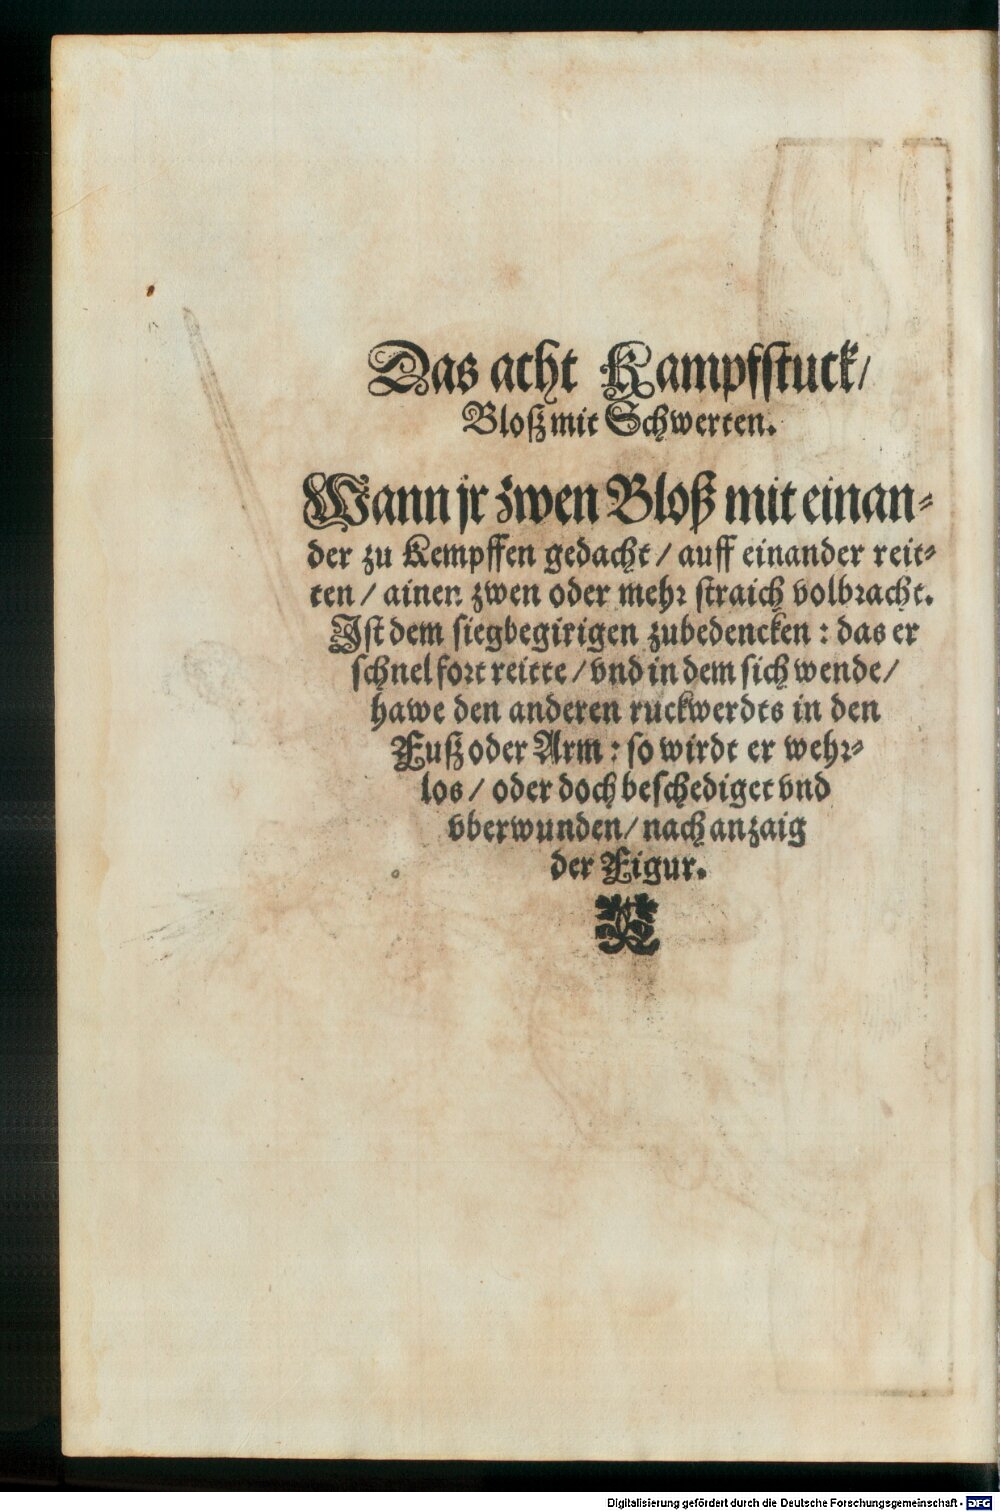 Das acht Kampfstuck/
Bloß mit Schwerten.
Wann jr zwen Bloß mit einan-
der zu Kempffen gedacht/ auff einander reit-
ten/ ainen zwen oder mehr straich volbracht.
Ist dem siegbegirigen zubedencken: das er
schnel fort reitte/ vnd in dem sich wende/
hawe den anderen ruckwerdts in den
Fuß oder Arm: so wirdt er wehr-
los/ oder doch beschediget vnd
vberwunden/ nach anzaig
der Figur.
Digitalisierung gefördert durch die Deutsche Forschungsgemeinschaft - DFG